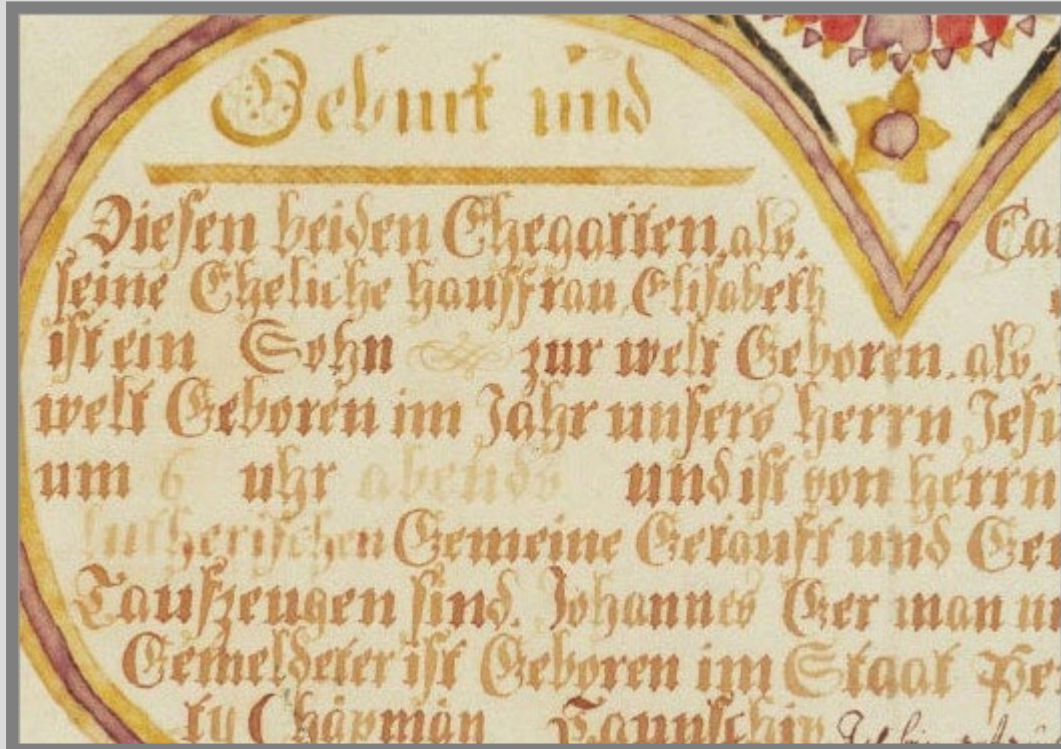 Geburt und
Diesen beiden Ehegatten, als,
seine Eheliche haussfrau, Elisabeth
ist ein Sohn zur welt Geboren, als,
welt Geboren im Jahr unsers herrn Jesu
um 6 uhr abends und ist von herrn
lutherischen Gemeine Getauft und
Taufzeugen sind, Johannes German
Gemeldeter ist Geboren im Staat Pe
ty Chäpmän Taunschip